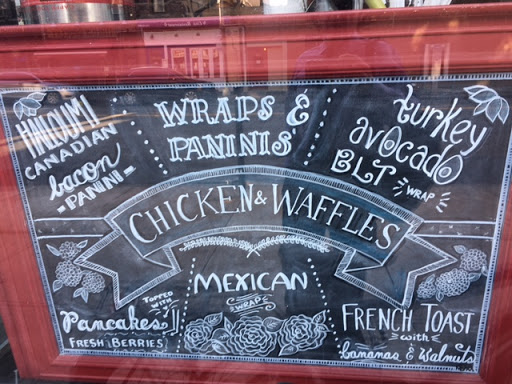 HALOUMI
CANADIAN
bacon
-PANINI-
WRAPS &
PANINIS
turkey
avocado
BLT
WRAP
CHICKEN & WAFFLES
MEXICAN
WRAP
TOPPED
WITH
Pancakes
FRESH BERRIES
FRENCH TOAST
with
bananas & Walnuts